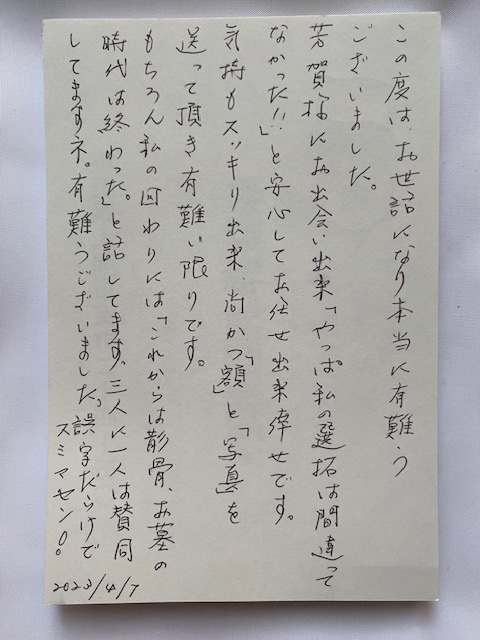 この度は、お世話になり本当に有難う
ございました。
芳賀様にお出会い出来「やっぱ私の選拓は間違って
なかった!!」と安心してお任せ出来倖せです。
気持もスッキリ出来、尚かつ「額」と「写真」を
送って頂き有難い限りです。
もちろん私の回わりには「これからは散骨、お墓の
時代は終わった。」と話してます、三人に一人は賛同
してますネ。有難うございました。誤字だらけで
スミマセン!!
2023/4/7